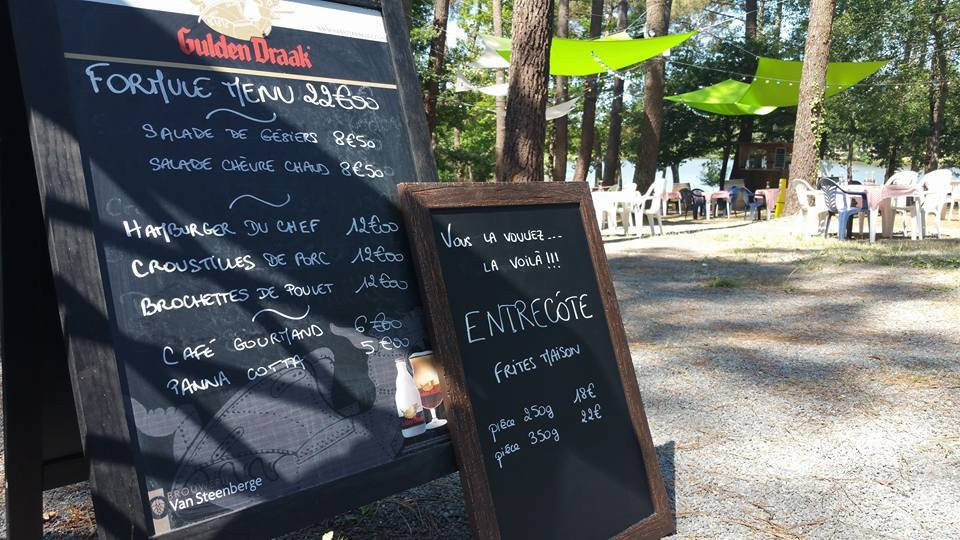 Gulden Draak
FORMULE MENU 22€00
SALADE DE GÉSIERS 8€50
SALADE CHÈVRE CHAUD 8€50
HAMBURGER DU CHEF 12€00
CROUSTILLES DE PORC 12€00
BROCHETTES DE POULET 12€00
CAFÉ GOURMAND 6€00
PANNA COTTA 5€00
BROUWERIJ
Van Steenberge
VOUS LA VOULIEZ...
LA VOILÀ !!!
ENTRECÔTE
FRITES MAISON
pièce 250g 18€
pièce 350g 22€